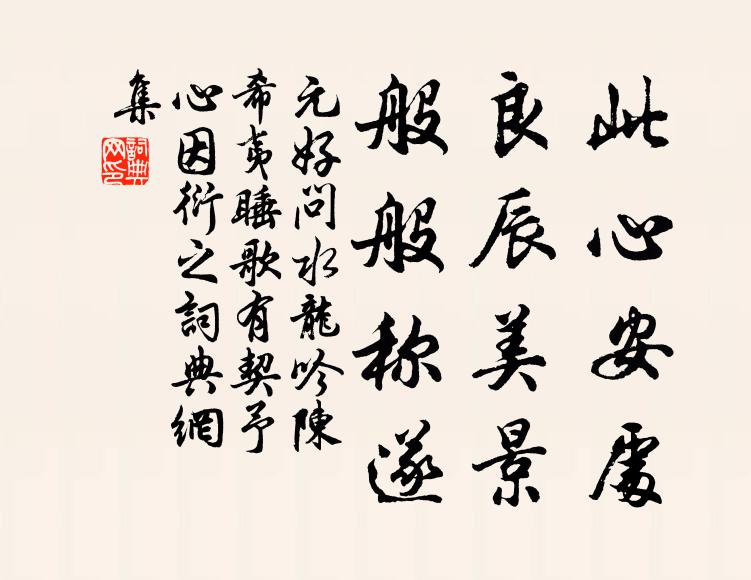 此心安處
良辰美景
般般称遂
元好問水龍吟陳
希夷睡歌有契予
心因衍之詞典網
集
詞典
网印